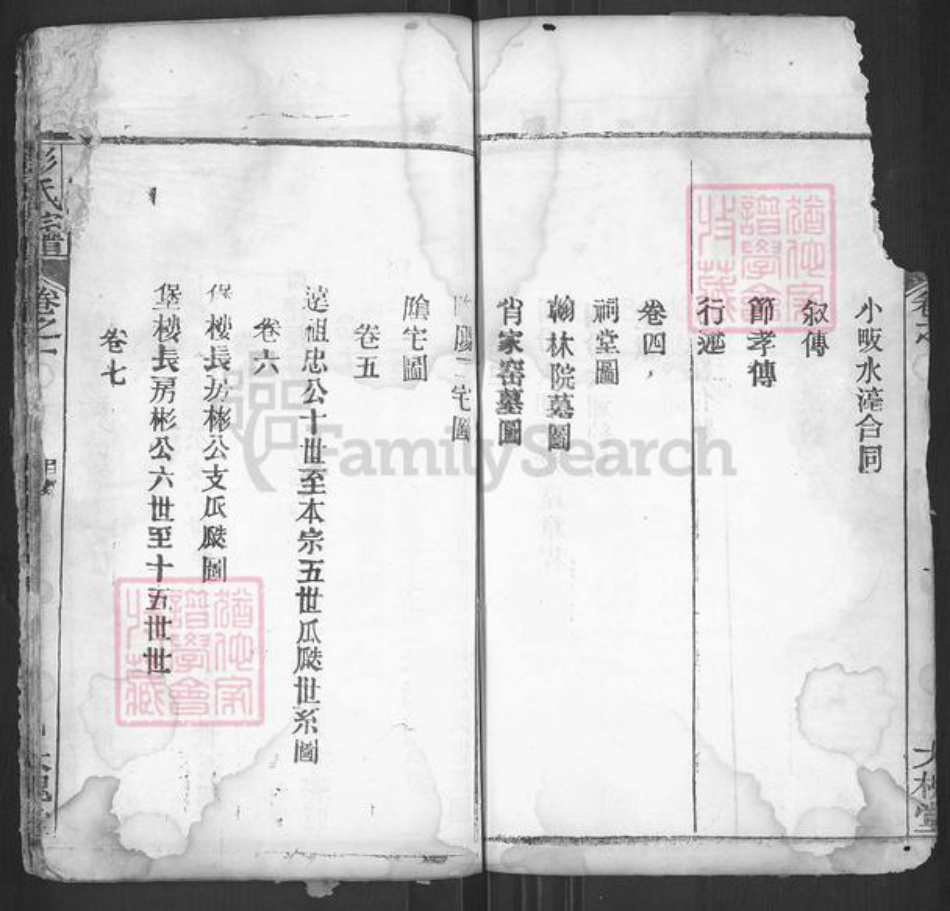 小畈水䓬合同
叙傳
節孝傳
行述
卷四
祠堂圖
翰林院墓圖
肖家窑墓圖
陽二宅圖
陰宅圖
卷五
遠祖忠公十世至本宗五世瓜瓞世系圖
卷六
堡樓長房彬公支瓜瓞圖
堡樓長房彬公六世至十五世世
卷七
彭氏宗譜
卷之一
大槐堂
FamilySearch
猶他家譜學會收藏
猶他家譜學會收藏